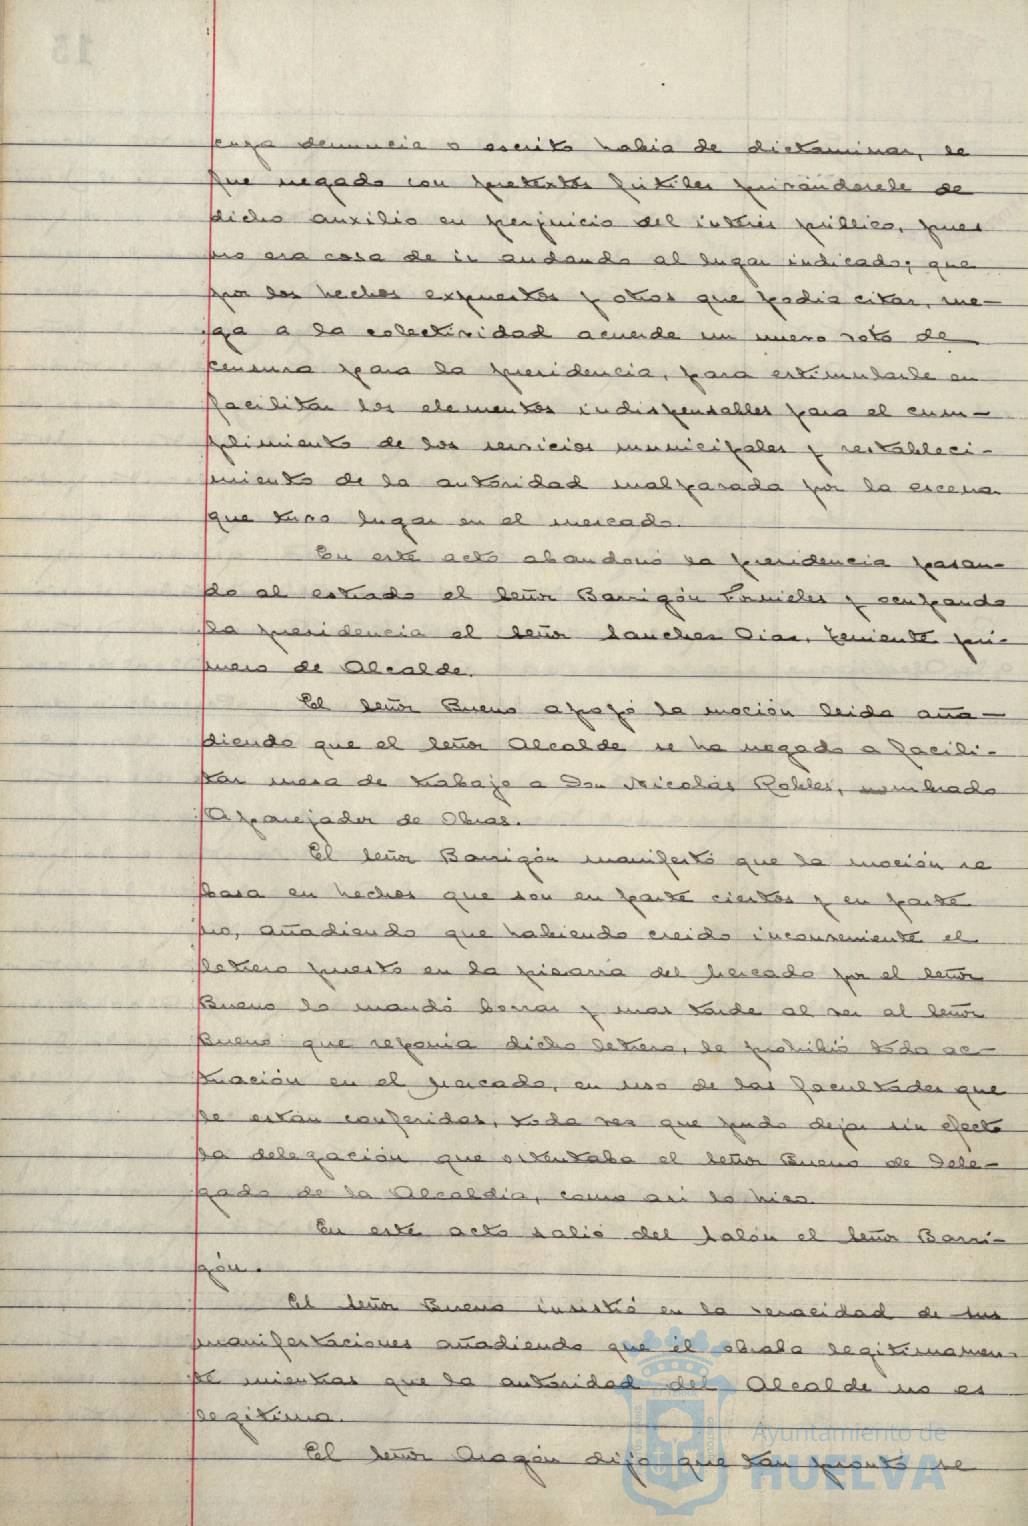 cuya denuncia o escrito habia de dictaminar, le
fue negado con pretextos fútiles privándosele de
dicho auxilio en perjuicio del interés público, pues
no era cosa de ir andando al lugar indicado; que
por los hechos expuestos y otros que podia citar, rue-
ga a la colectividad acuerde un nuevo voto de
censura para la presidencia, para estimularle en
facilitar los elementos indispensables para el cum-
plimiento de los servicios municipales y restableci-
miento de la autoridad malparada por la escena
que tuvo lugar en el mercado.
En este acto abandonó la presidencia pasan-
do al estrado el señor Barrigón Fornieles y ocupando
la presidencia el señor Sanchez Diaz, teniente pri-
mero de Alcalde.
El señor Bueno apoyó la moción leida aña-
diendo que el señor Alcalde se ha negado a facili-
tar mesa de trabajo a Don Nicolás Robles, nombrado
Aparejador de Obras.
El señor Barrigón manifestó que la moción se
basa en hechos que son en parte ciertos y en parte
no, añadiendo que habiendo creido inconveniente el
letrero puesto en la pizarra del Mercado por el señor
Bueno lo mandó borrar y mas tarde al ver al señor
Bueno que reponia dicho letrero, le prohibió toda ac-
tuación en el Mercado, en uso de las facultades que
le están conferidas, toda vez que pudo dejar sin efecto
la delegación que ostentaba el señor Bueno de Dele-
gado de la Alcaldia, como asi lo hizo.
En este acto salió del salón el señor Barri-
gón.
El señor Bueno insistió en la veracidad de sus
manifestaciones añadiendo que él obraba legitimamen-
te mientras que la autoridad del Alcalde no es
legitima.
El señor Aragón dijo que tan pronto se
Ayuntamiento de
HUELVA